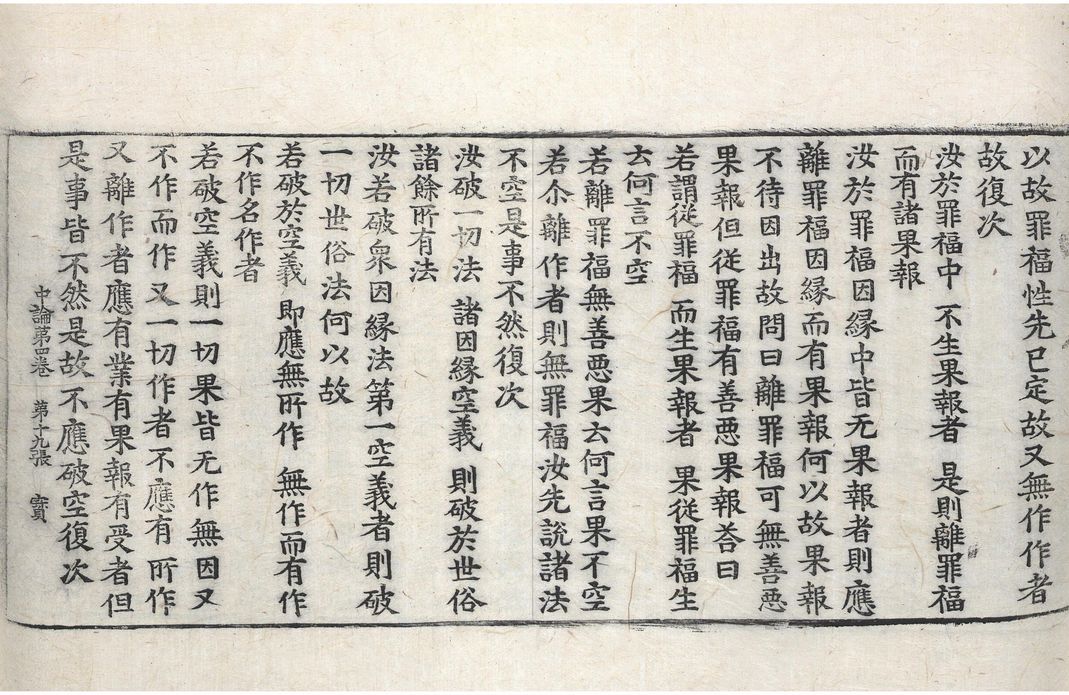 以故罪福性先已定故又無作作者
故復次
汝於罪福中 不生果報者 是則離罪福
而有諸果報
汝於罪福因緣中皆无果報者則應
離罪福因緣而有果報何以故果報
不待因出故問曰離罪福可無善惡
果報但從罪福有善惡果報荅曰
若謂從罪福 而生果報者 果從罪福生
云何言不空
若離罪福無善惡果云何言果不空
若尒離作者則無罪福汝先說諸法
不空是事不然復次
汝破一切法 諸因緣空義 則破於世俗
諸餘所有法
汝若破衆因緣法第一空義者則破
一切世俗法何以故
若破於空義 即應無所作 無作而有作
不作名作者
若破空義則一切果皆无作無因又
不作而作又一切作者不應有所作
又離作者應有業有果報有受者但
是事皆不然是故不應破空復次
中論第四卷 第十九張 寶